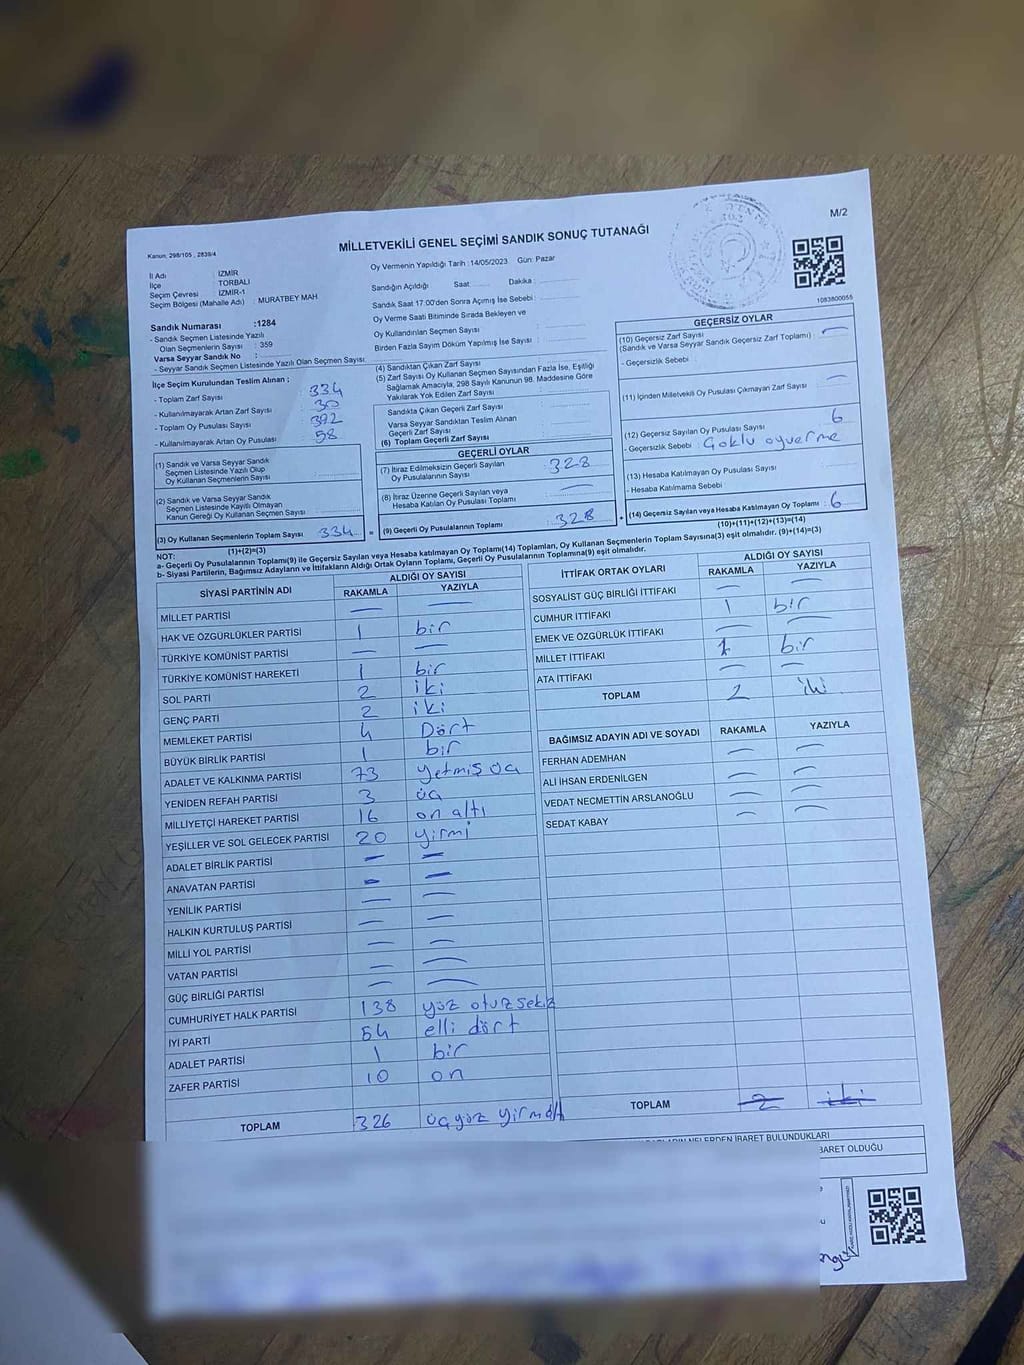 M/2
MİLLETVEKİLİ GENEL SEÇİMİ SANDIK SONUÇ TUTANAĞI
Kanun, 298/105 , 2839/4
1083800055
İl Adı : İZMİR
İlçe : TORBALI
Seçim Çevresi : İZMİR-1
Seçim Bölgesi (Mahalle Adı) : MURATBEY MAH
Sandık Numarası :1284
- Sandık Seçmen Listesinde Yazılı
Olan Seçmenlerin Sayısı : 359
Varsa Seyyar Sandık No :
- Seyyar Sandık Seçmen Listesinde Yazılı Olan Seçmen Sayısı:
İlçe Seçim Kurulundan Teslim Alınan :
- Toplam Zarf Sayısı : 334
- Kullanılmayarak Artan Zarf Sayısı : 30
- Toplam Oy Pusulası Sayısı : 392
- Kullanılmayarak Artan Oy Pusulası : 58
(1) Sandık ve Varsa Seyyar Sandık
Seçmen Listesinde Yazılı Olup
Oy Kullanan Seçmenlerin Sayısı :
(2) Sandık ve Varsa Seyyar Sandık
Seçmen Listesinde Kayıtlı Olmayan
Kanun Gereği Oy Kullanan Seçmen Sayısı :
(3) Oy Kullanan Seçmenlerin Toplam Sayısı : 334 =
(1)+(2)=(3)
Oy Vermenin Yapıldığı Tarih :14/05/2023 Gün: Pazar
Sandığın Açıldığı Saat Dakika :
Sandık Saat 17.00'den Sonra Açımış İse Sebebi :
Oy Verme Saati Bitiminde Sırada Bekleyen ve
Oy Kullandırılan Seçmen Sayısı :
Birden Fazla Sayım Döküm Yapılmış İse Sayısı :
(4) Sandıktan Çıkan Zarf Sayısı
(5) Zarf Sayısı Oy Kullanan Seçmen Sayısından Fazla İse, Eşitliği
Sağlamak Amacıyla, 298 Sayılı Kanunun 98. Maddesine Göre
Yakılarak Yok Edilen Zarf Sayısı :
Sandıkta Çıkan Geçerli Zarf Sayısı :
Varsa Seyyar Sandıktan Teslim Alınan
Geçerli Zarf Sayısı :
(6) Toplam Geçerli Zarf Sayısı
GEÇERLİ OYLAR
(7) İtiraz Edilmeksizin Geçerli Sayılan
Oy Pusulalarının Sayısı : 328
(8) İtiraz Üzerine Geçerli Sayılan veya
Hesaba Katılan Oy Pusulası Toplamı : —
(9) Geçerli Oy Pusulalarının Toplamı : 328 +
GEÇERSİZ OYLAR
(10) Geçersiz Zarf Sayısı
(Sandık ve Varsa Seyyar Sandık Geçersiz Zarf Toplamı) : —
- Geçersizlik Sebebi :
(11) İçinden Milletvekili Oy Pusulası Çıkmayan Zarf Sayısı : —
(12) Geçersiz Sayılan Oy Pusulası Sayısı : 6
- Geçersizlik Sebebi : Çoklu oyverme
(13) Hesaba Katılmayan Oy Pusulası Sayısı :
- Hesaba Katılmama Sebebi
(14) Geçersiz Sayılan veya Hesaba Katılmayan Oy Toplamı : 6
(10)+(11)+(12)+(13)=(14)
NOT:
a- Geçerli Oy Pusulalarının Toplamı(9) ile Geçersiz Sayılan veya Hesaba katılmayan Oy Toplamı(14) Toplamları, Oy Kullanan Seçmenlerin Toplam Sayısına(3) eşit olmalıdır. (9)+(14)=(3)
b- Siyasi Partilerin, Bağımsız Adayların ve İttifakların Aldığı Ortak Oyların Toplamı, Geçerli Oy Pusulalarının Toplamına(9) eşit olmalıdır.
SİYASİ PARTİNİN ADI ALDIĞI OY SAYISI
RAKAMLA YAZIYLA
MİLLET PARTİSİ — —
HAK VE ÖZGÜRLÜKLER PARTİSİ 1 bir
TÜRKİYE KOMÜNİST PARTİSİ — —
TÜRKİYE KOMÜNİST HAREKETİ 1 bir
SOL PARTİ 2 iki
GENÇ PARTİ 2 iki
MEMLEKET PARTİSİ 4 Dört
BÜYÜK BİRLİK PARTİSİ 1 bir
ADALET VE KALKINMA PARTİSİ 73 yetmiş üç
YENİDEN REFAH PARTİSİ 3 üç
MİLLİYETÇİ HAREKET PARTİSİ 16 on altı
YEŞİLLER VE SOL GELECEK PARTİSİ 20 yirmi
ADALET BİRLİK PARTİSİ — —
ANAVATAN PARTİSİ — —
YENİLİK PARTİSİ — —
HALKIN KURTULUŞ PARTİSİ — —
MİLLİ YOL PARTİSİ — —
VATAN PARTİSİ — —
GÜÇ BİRLİĞİ PARTİSİ — —
CUMHURİYET HALK PARTİSİ 138 yüz otuz sekiz
İYİ PARTİ 54 elli dört
ADALET PARTİSİ 1 bir
ZAFER PARTİSİ 10 on
TOPLAM 326
İTTİFAK ORTAK OYLARI ALDIĞI OY SAYISI
RAKAMLA YAZIYLA
SOSYALİST GÜÇ BİRLİĞİ İTTİFAKI — —
CUMHUR İTTİFAKI 1 bir
EMEK VE ÖZGÜRLÜK İTTİFAKI — —
MİLLET İTTİFAKI 1 bir
ATA İTTİFAKI — —
TOPLAM 2 iki
BAĞIMSIZ ADAYIN ADI VE SOYADI RAKAMLA YAZIYLA
FERHAN ADEMHAN — —
ALİ İHSAN ERDENİLGEN — —
VEDAT NECMETTİN ARSLANOĞLU — —
SEDAT KABAY — —
TOPLAM 2 iki
NELERDEN İBARET BULUNDUKLARI
BARET OLDUĞU